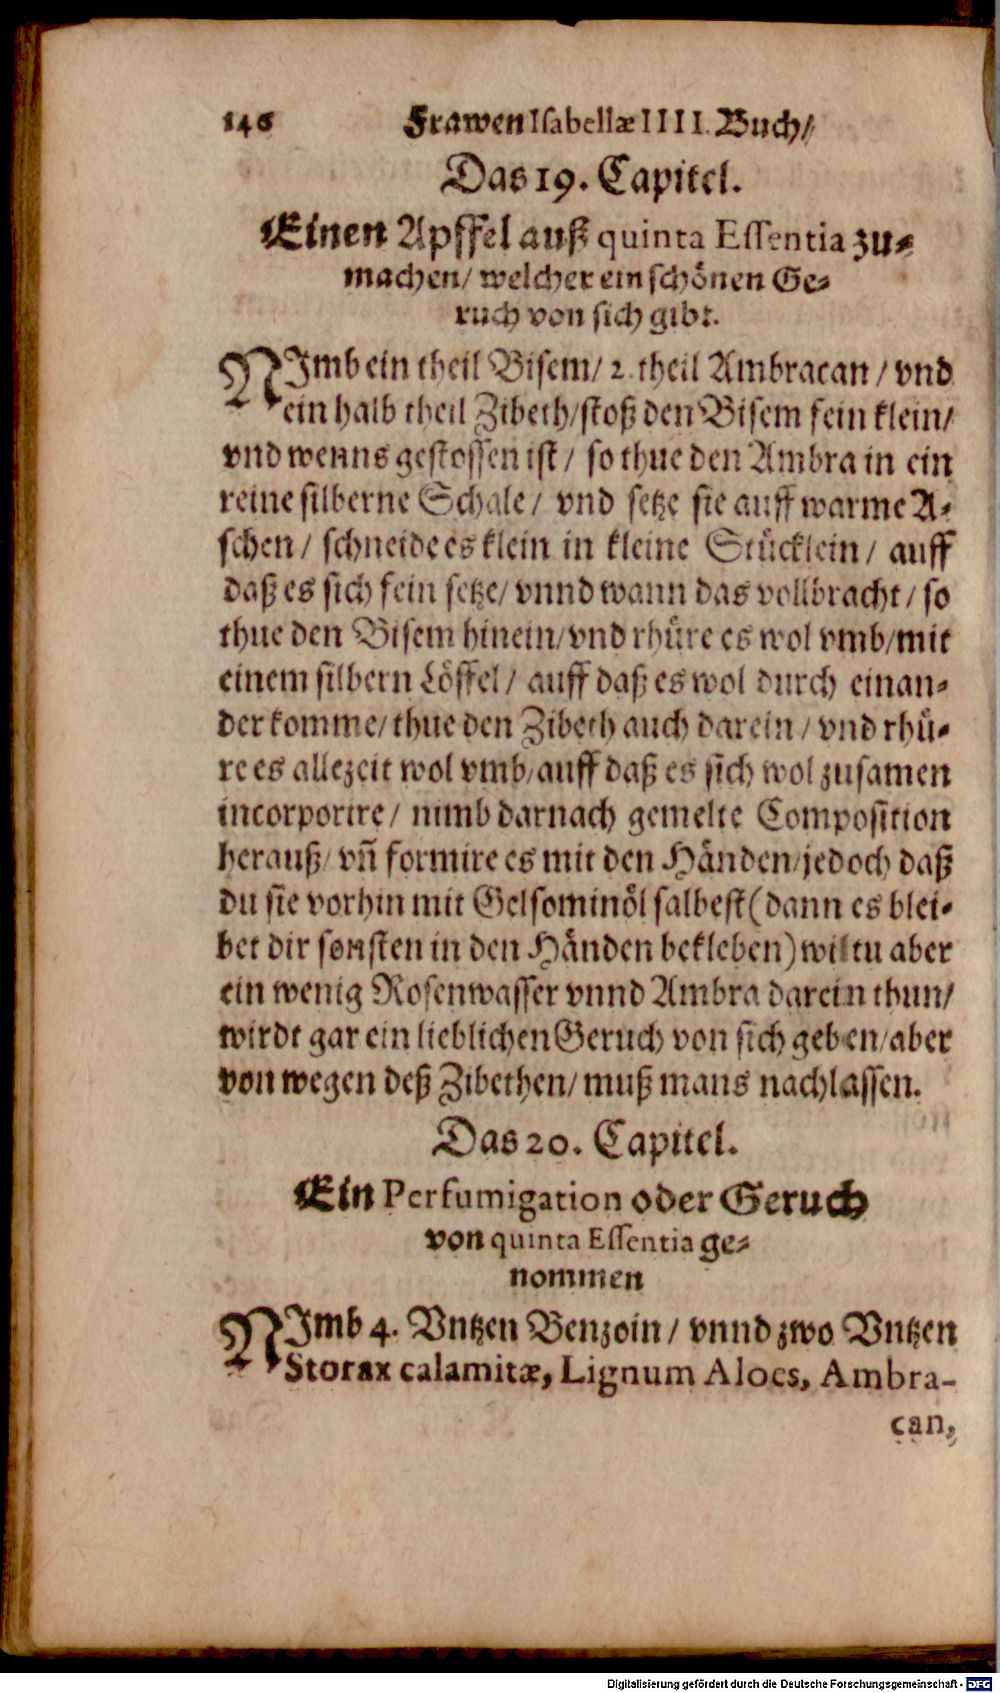 146 Frawen Isabellæ IIII. Buch/
Das 19. Capitel.
Einen Apffel auß quinta Essentia zu-
machen/ welcher ein schönen Ge-
ruch von sich gibt.
NJmb ein theil Bisem/ 2. theil Ambracan/ vnd
ein halb theil Zibeth/ stoß den Bisem fein klein/
vnd wenns gestossen ist/ so thue den Ambra in ein
reine silberne Schale/ vnd setze sie auff warme A-
schen/ schneide es klein in kleine Stücklein/ auff
daß es sich fein setze/ vnnd wann das vollbracht/ so
thue den Bisem hinein/ vnd rhüre es wol vmb/ mit
einem silbern Löffel/ auff daß es wol durch einan-
der komme/ thue den Zibeth auch darein/ vnd rhü-
re es allezeit wol vmb/ auff daß es sich wol zusamen
incorporire/ nimb darnach gemelte Composition
herauß/ vñ formire es mit den Händen/ jedoch daß
du sie vorhin mit Gelsominöl salbest (dann es blei-
bet dir sonsten in den Händen bekleben) wiltu aber
ein wenig Rosenwasser vnnd Ambra darein thun/
wirdt gar ein lieblichen Geruch von sich geben/ aber
von wegen deß Zibethen/ muß mans nachlassen.
Das 20. Capitel.
Ein Perfumigation oder Geruch
von quinta Essentia ge-
nommen
NJmb 4. Vntzen Benzoin/ vnnd zwo Vntzen
Storax calamitæ, Lignum Aloes, Ambra-
can,
Digitalisierung gefördert durch die Deutsche Forschungsgemeinschaft - DFG